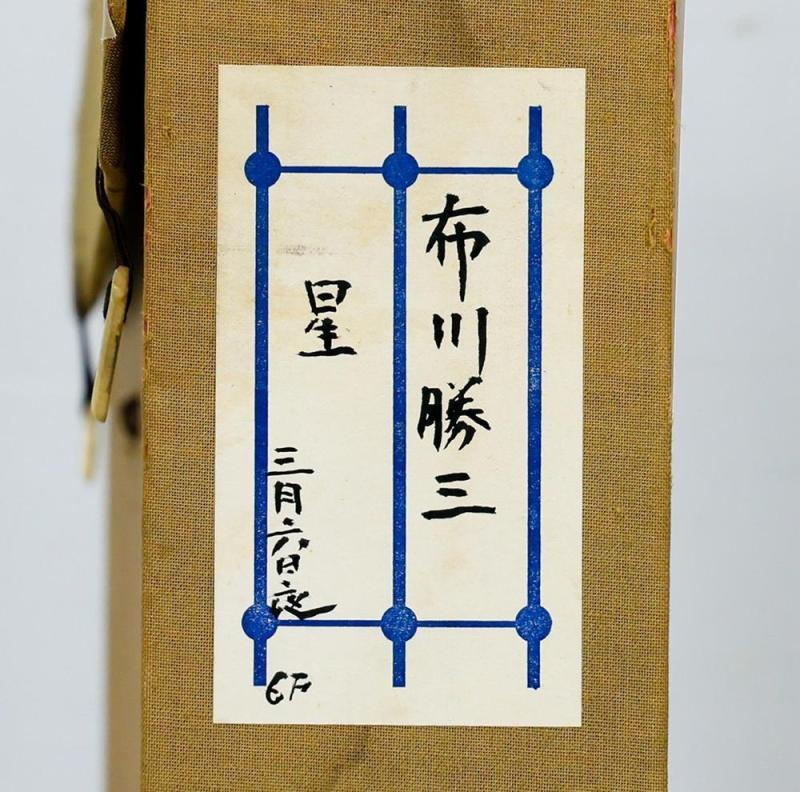 布川勝三
星
三月六日夜
6F